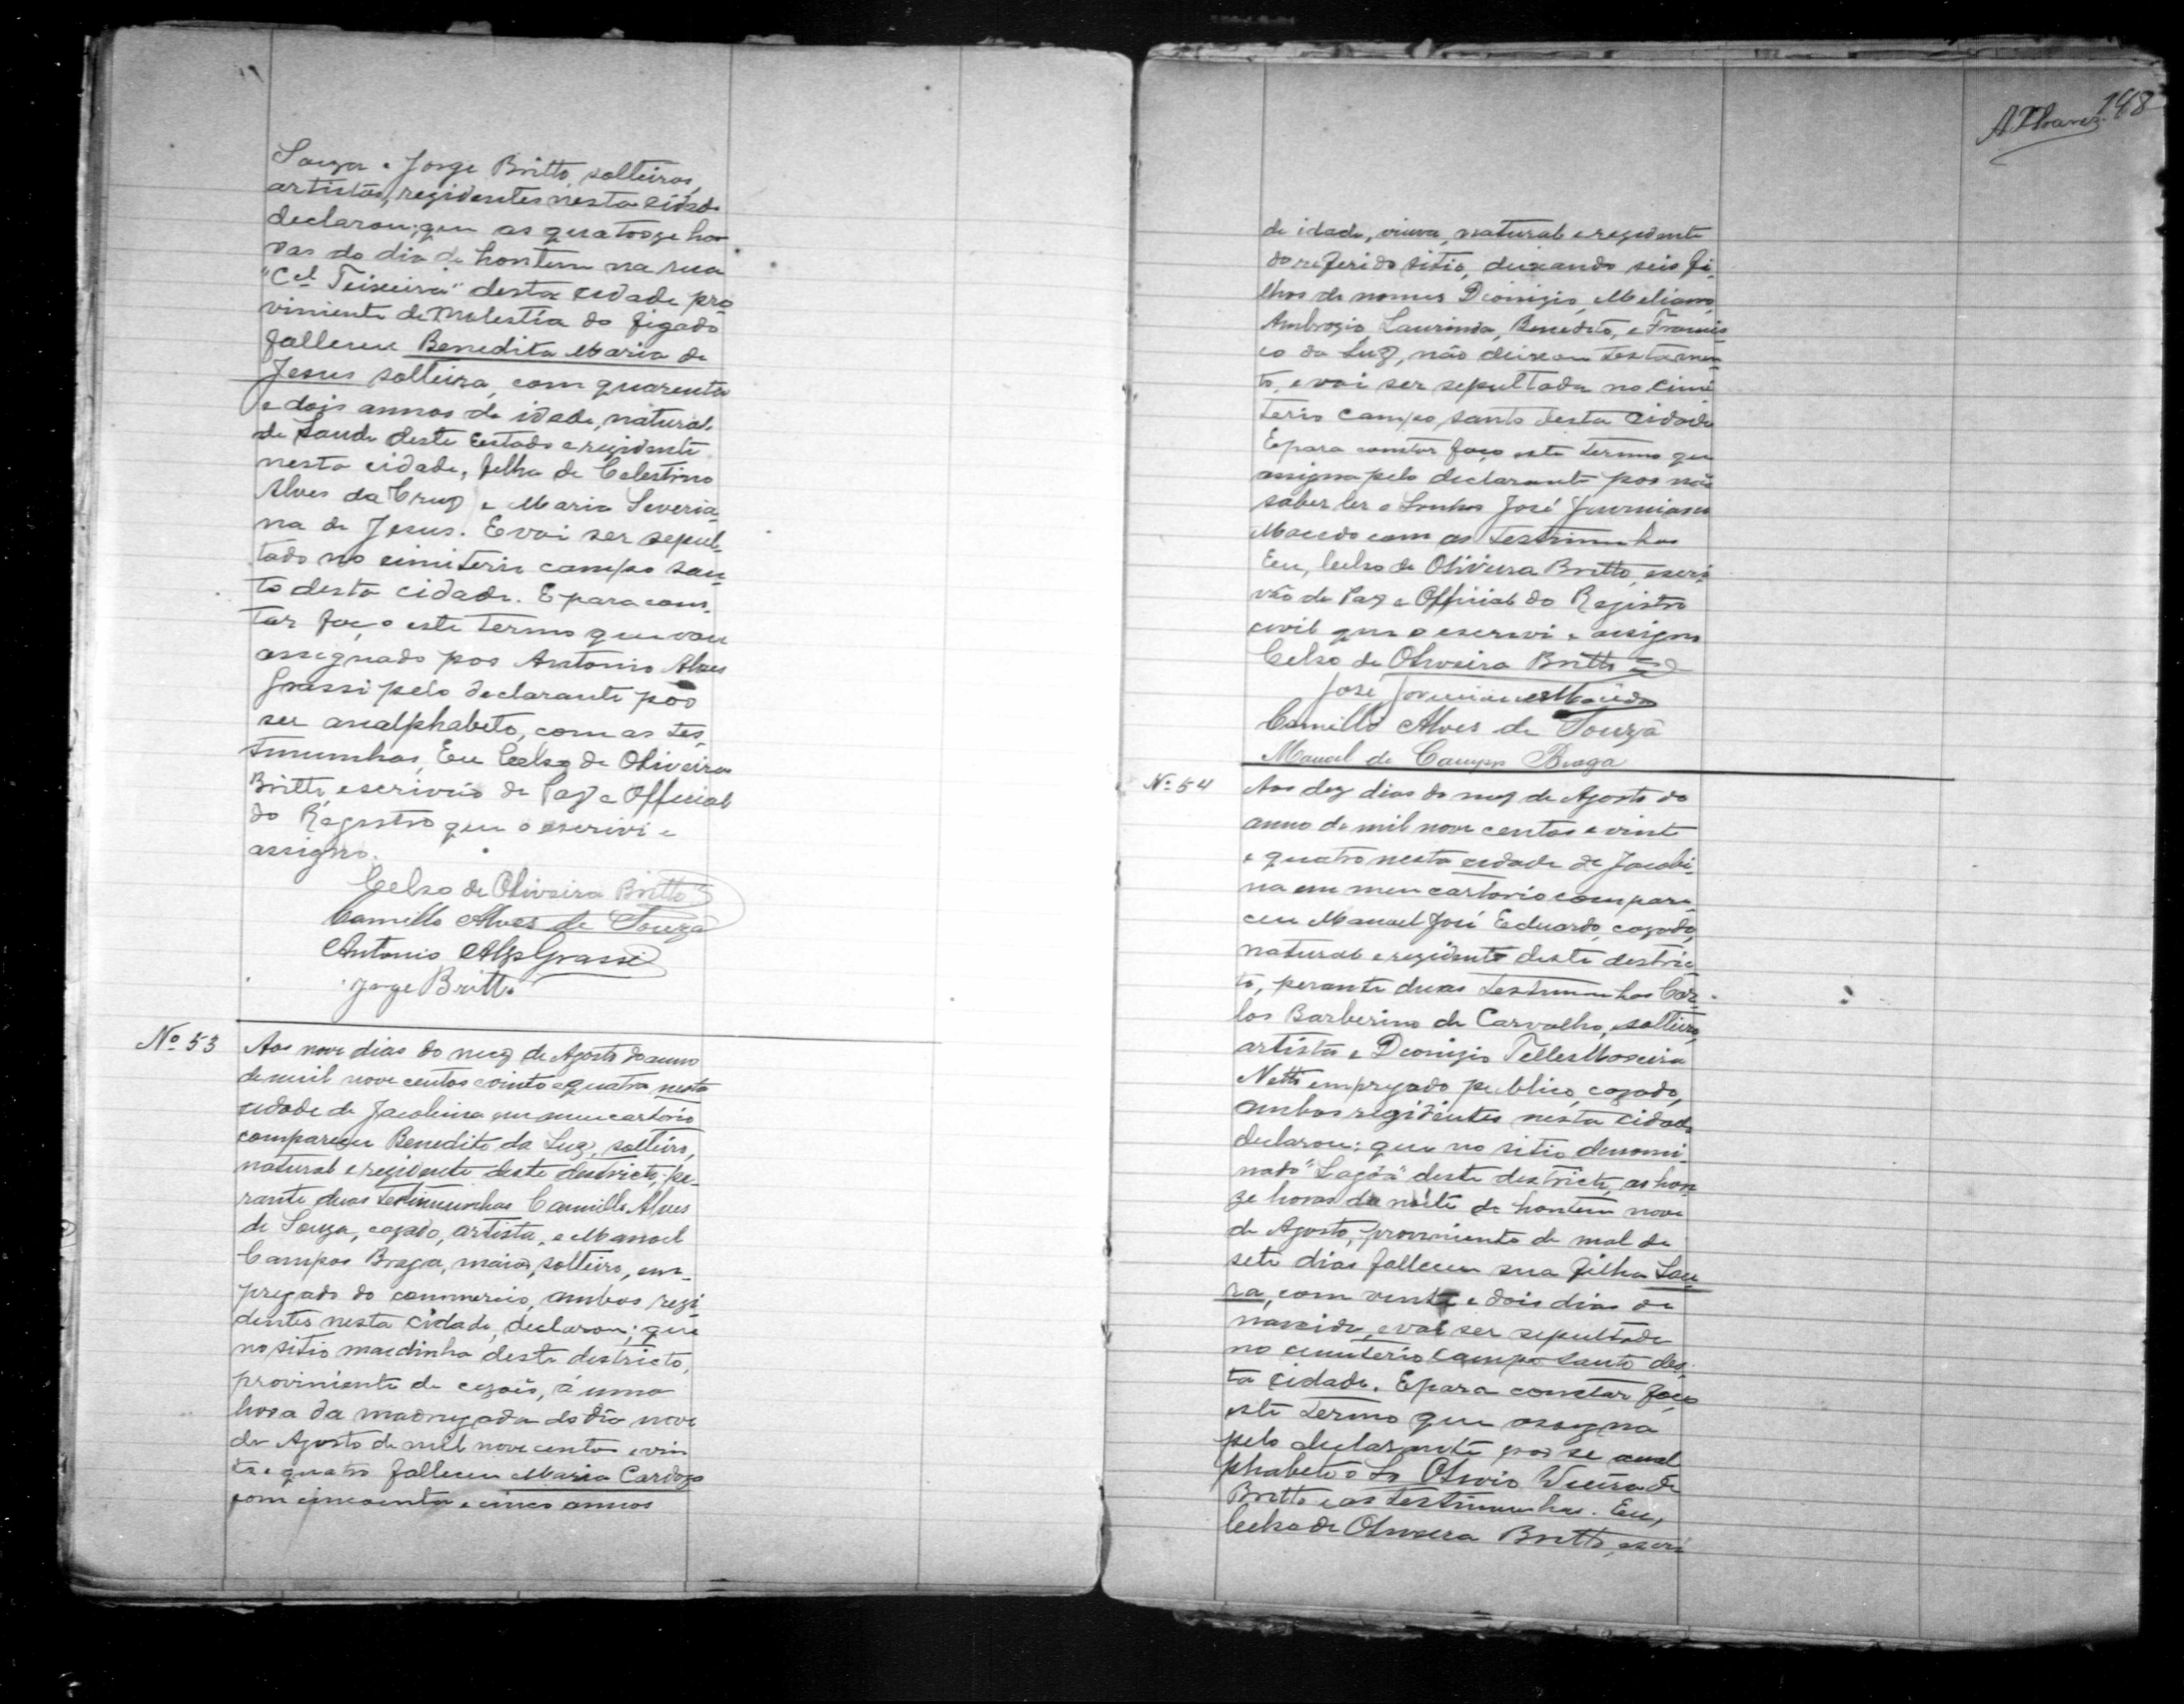 Souza e Jorge Britto, solteiros,
artistas, rezidentes nesta cidade
declarou; que as quatorze ho
ras do dia de hontem na rua
"Cel Teixeira" desta cidade pro
viniente de molestia do figado
falleceu Benedita Maria de
Jesus solteira, com quarenta
e dois annos de idade, natural
de Saude deste Estado e rezidente
nesta cidade, filha de Celestino
Alves da Cruz e Maria Severia-
na de Jesus. E vai ser sepul-
tado no cimiterio campo san-
to desta cidade. E para cons-
tar faço este termo que vau
assegnado por Antonio Alves
Grassi pelo declarante por
ser analphabeto, com as tes-
timunhas, Eu Celso de Oliveira
Britto, escrivão de Paz e Official
do Registro que o escrivi e
assigno.
Celso de Oliveira Britto
Camillo Alves de Souza
Antonio Alves Grassi
Jorge Britto
No 53 Aos nove dias do mez de Agosto do anno
de mil nove centos e vinte e quatro nesta
cidade de Jacobina em meu cartorio
compareceu Benedito da Luz, solteiro,
natural e rezidente deste destricto; pe-
rante duas testimunhas Camillo Alves
de Souza, cazado, artista, e Manoel
Campos Braga, maior, solteiro, em-
pregado do commercio, ambos rezi-
dentes nesta cidade, declarou; que
no sitio deste destricto,
proviniente de cezões, á uma
hora da madrugada do dia nove
de Agosto de mil nove centos e vin
te e quatro falleceu Maria Cardozo
com cincoenta e cinco annos
198
de idade, viuva, natural e rezidente
do referido sitio, deixando seis fi-
lhos de nomes Dionizio,
Ambrozio, Laurinda, Benedito, e Francis
co da Luz, não deixou testamen-
to, e vai ser sepultada no cimi
terio campo santo desta cidade
E para constar faço este termo que
assigna pelo declarante por não
saber ler o Senhor José
Macedo com as testimunhas
Eu, Celso de Oliveira Britto, escri-
vão de Paz e Official do Registro
civil que o escrevi e assigno
Celso de Oliveira Britto
José Macedo
Camillo Alves de Souza
Manoel de Campos Braga
No 54 Aos dez dias do mez de Agosto do
anno de mil nove centos e vinte
e quatro nesta cidade de Jacobi-
na em meu cartorio compare-
ceu Manoel José Eduardo, cazado,
natural e rezidente deste destric
to, perante duas testimunhas Car-
los Barberino de Carvalho, solteiro,
artista e Dionizio Telles Moreira
Netto empregado publico, cazado,
ambos rezidentes nesta cidade
declarou: que no sitio denomi-
nado "Lagôa" deste destricto, as hon
ze horas da noite de hontem nove
de Agosto, proviniente de mal de
sete dias falleceu sua filha Lau-
ra, com vinte e dois dias de
nascida, e vai ser sepultada
no cimiterio campo santo des-
ta cidade. E para constar faço
este termo que assegna
pelo declarante por se anal
phabeto o Sr Otavio Vieira de
Britto e as testimunhas. Eu,
Celso de Oliveira Britto, escri